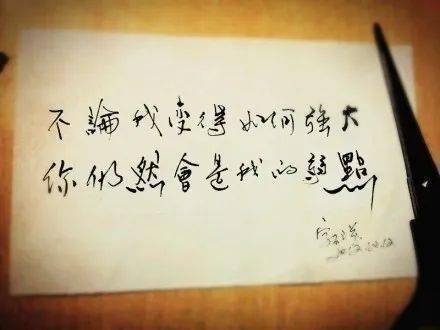 不論我變得如何強大
你仍然會是我的弱點